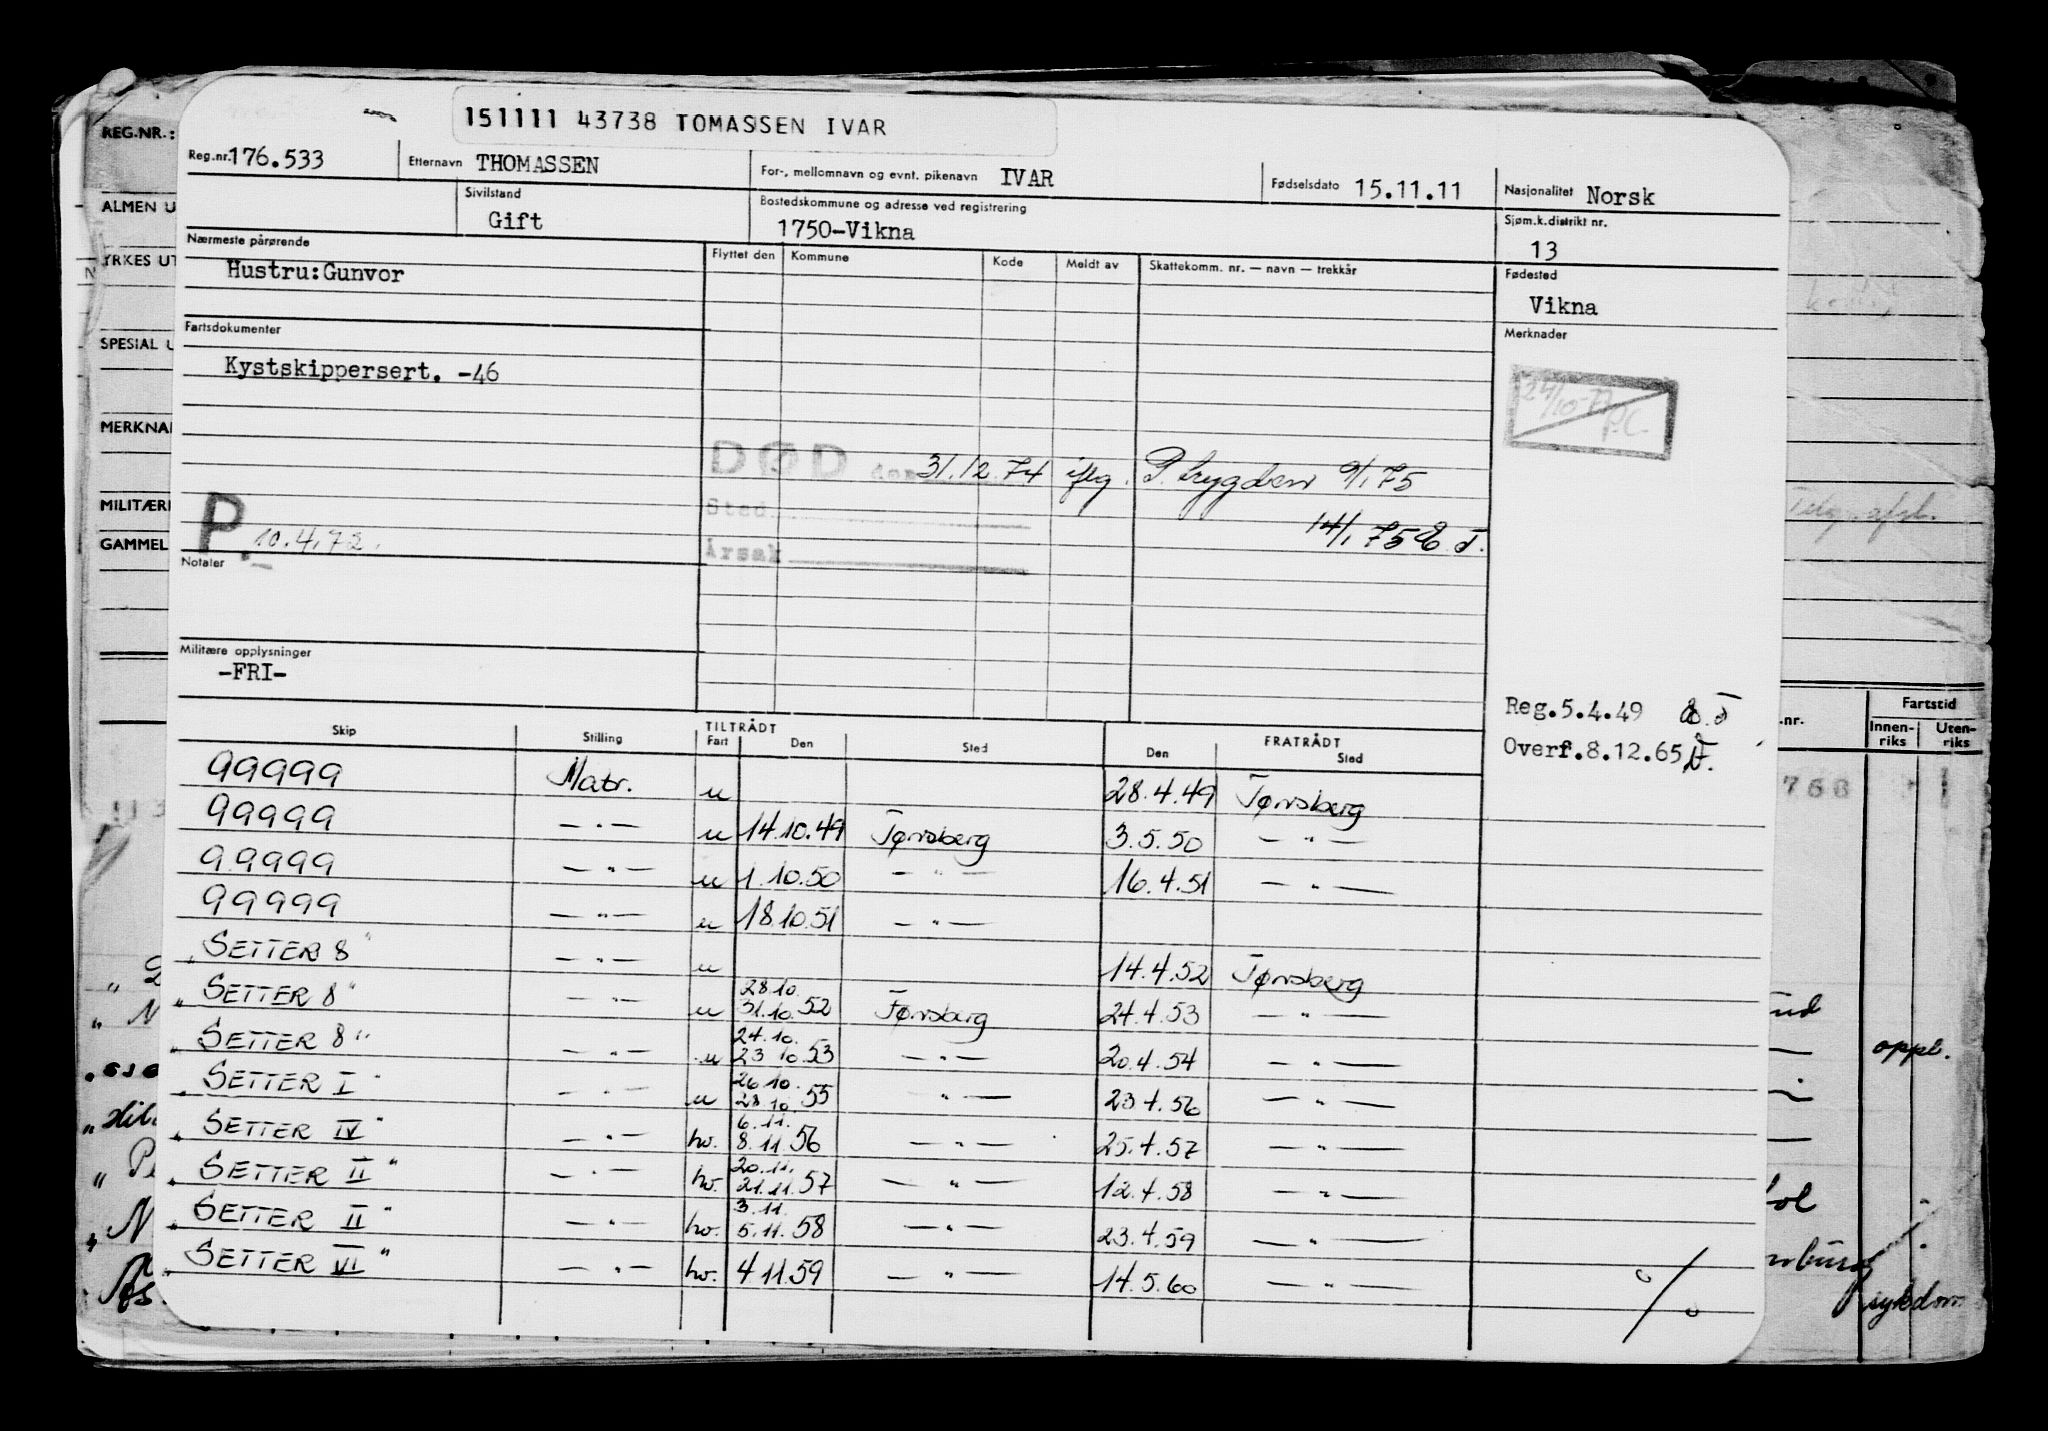 151111 43738 TOMASSEN IVAR
REG.NR.:
Reg.nr. 176.533 Etternavn THOMASSEN For-, mellomnavn og evnt. pikenavn IVAR Fødselsdato 15.11.11 Nasjonalitet Norsk
ALMEN U
Sivilstand Gift Bostedskommune og adresse ved registrering 1750-Vikna Sjøm.k.distrikt nr. 13
YRKES UT
Nærmeste pårørende Flyttet den Kommune Kode Meldt av Skattekomm. nr. — navn — trekkår Fødested
Hustru:Gunvor Vikna
SPESIAL U
Fartsdokumenter Merknader
Kystskippersert. -46
24/10-77 P.C.
MERKNA
DØD den 31.12.74 iflg. P. trygden 9/1 75
MILITÆRE
Sted
14/1 75
P. 10.4.72.
GAMMEL
Årsak
Notater
Militære opplysninger
-FRI-
Reg.5.4.49
Overf.8.12.65
.nr. Fartstid
Innen-riks Uten-riks
TILTRÅDT FRATRÅDT
Skip Stilling Fart Den Sted Den Sted
99999 Matr. u 28.4.49 Tønsberg
99999 — " — u 14.10.49 Tønsberg 3.5.50 — " —
99999 — " — u 1.10.50 — " — 16.4.51 — " —
99999 — " — u 18.10.51 — " —
"SETTER 8" — " — u 14.4.52 Tønsberg
"SETTER 8" — " — u 28.10. 31.10.52 Tønsberg 24.4.53 — " —
"SETTER 8" — " — u 24.10. 23.10.53 — " — 20.4.54 — " —
"SETTER I" — " — u 26.10. 28.10.55 — " — 23.4.56 — " —
"SETTER IV" — " — hv. 6.11. 8.11.56 — " — 25.4.57 — " —
"SETTER II" — " — hv. 20.11. 21.11.57 — " — 12.4.58 — " —
"SETTER II" — " — hv. 3.11. 5.11.58 — " — 23.4.59 — " —
"SETTER VI" — " — hv. 4.11.59 — " — 14.5.60 — " —
oppl.
sykdom